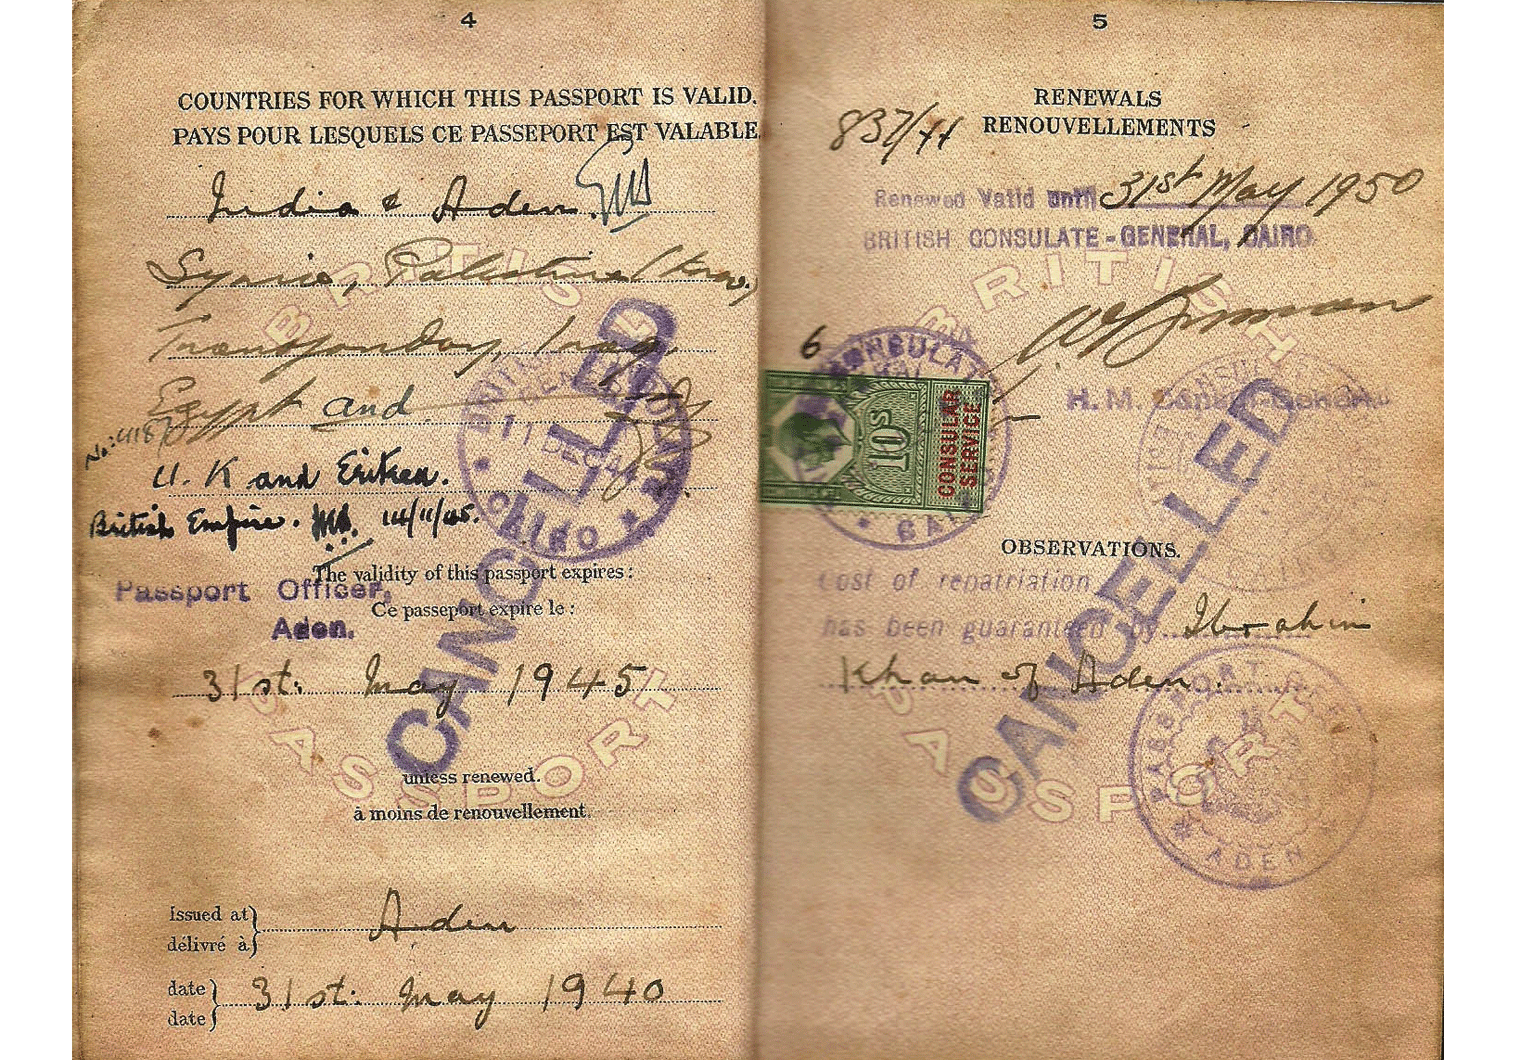 4
COUNTRIES FOR WHICH THIS PASSPORT IS VALID.
PAYS POUR LESQUELS CE PASSEPORT EST VALABLE
India & Aden.
Syria, Palestine
Transjordan, Iraq,
Egypt and
U. K and Eritrea.
British Empire. 14/11/45.
The validity of this passport expires:
Passport Officer,
Ce passeport expire le:
Aden.
31st. May 1945
unless renewed.
à moins de renouvellement.
Issued at
délivré à
Aden
date
date
31st. May 1940
BRITISH
PASSPORT
CANCELLED
11 DEC
CAIRO
5
RENEWALS
RENOUVELLEMENTS
837/44
Renewed Valid until 31st May 1950
BRITISH CONSULATE-GENERAL, CAIRO.
H. M. Consul-General
6
10s
CONSULAR
SERVICE
OBSERVATIONS.
Cost of repatriation
has been guaranteed by Ibrahim
Khan of Aden.
BRITISH
PASSPORT
CANCELLED
PASSPORT
ADEN